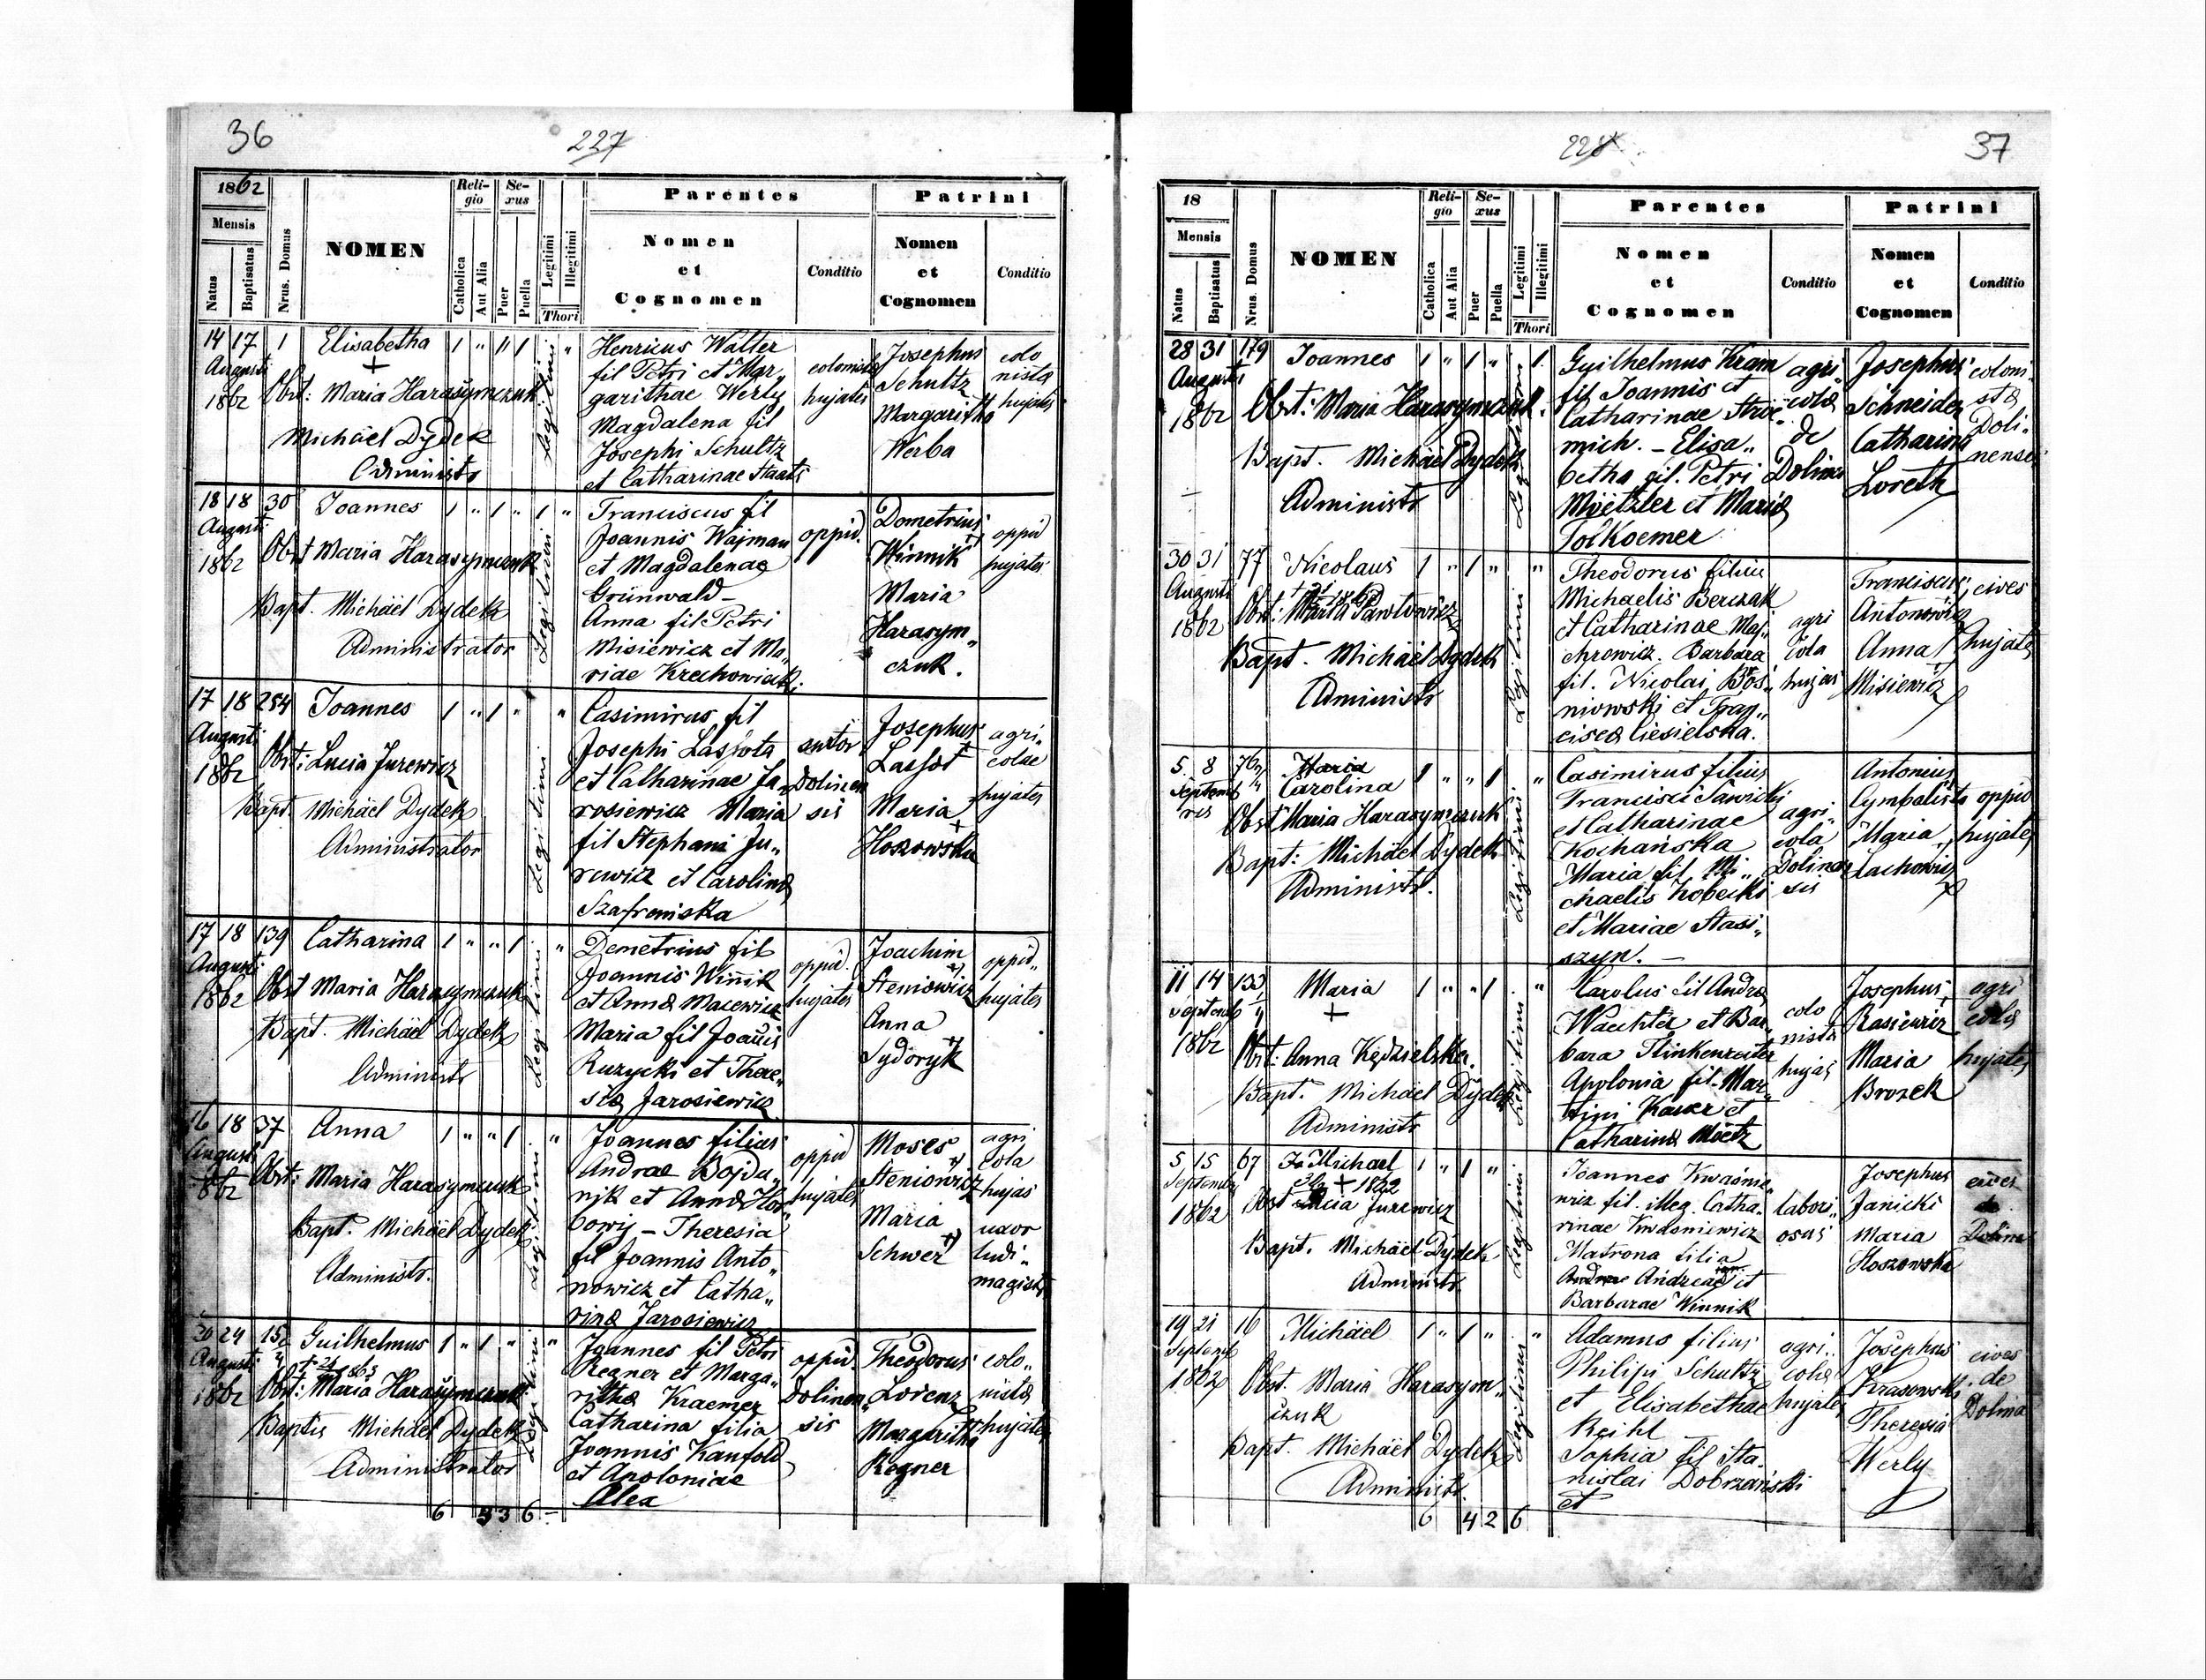 36
227
1862
Mensis
Natus
Baptisatus
Nrus. Domus
NOMEN
Religio
Catholica
Aut Alia
Sexus
Puer
Puella
Legitimi
Illegitimi
Thori
Parentes
Nomen
et
Cognomen
Conditio
Patrini
Nomen
et
Cognomen
Conditio
14 17 1 Elisabetha 1 " " 1 "
Augusti
1862
Obst: Maria Harasymczuk
Michäel Dydek
Administr
Legitimi
Henricus Walter
fil Petri et Mar„
garithae Werly
Magdalena fil
Josephi Schultz
et Catharinae Staats
colonista
hujates
Josephus
Schultz
Margaritha
Werba
colo
nista
hujates
18 18 30 Joannes 1 " 1 " 1 "
Augusti
1862
Obst Maria Harasymczuk
Bapt. Michäel Dydek
Administrator
Legitimi
Franciscus fil
Joannis Wajman
et Magdalenae
Grünwald –
Anna fil Petri
Misiewicz et Ma„
riae Krechowiecki
oppid.
Dometrius
Winnik
Maria
Harasym„
czuk.
oppid
hujates
17 18 284 Joannes 1 " 1 " "
Augusti
1862
Obst: Lucia Jurewicz
Bapt. Michäel Dydek
Administrator
Legitimi
Casimirus fil
Josephi Lassota
et Catharinae Ja„
rosiewicz Maria
fil Stephani Ju„
rewicz et Carolina
Szafrańska
sutor
Dolinen
sis
Josephus
Lassot
Maria
Hoszowska
agri„
colae
hujates
17 18 139 Catharina 1 " " 1 "
Augusti
1862
Obst Maria Harasymczuk
Bapt. Michäel Dydek
Administr
Legitimi
Demetrius fil
Joannis Winik
et Anna Macewicz
Maria fil Joanis
Ruzycki et There„
sia Jarosiewicz
oppid.
hujates
Joachim
Steniowicz
Anna
Sydoryk
oppid„
hujates
16 18 37 Anna 1 " " 1 "
Augusti
1862
Obst: Maria Harasymczuk
Bapt. Michäel Dydek
Administr.
Legitimi
Joannes filius
Andrae Bojda„
njk et Anna Hor„
bowij – Theresia
fil Joannis Anto„
nowicz et Catha„
rina Jarosiewicz
oppid
hujates
Moses
Steniowicz
Maria
Schwer
agri
cola
hujas
uxor
ludi„
magistr
20 24 152 Guilhelmus 1 " 1 " "
Augusti
1862
Obst: Maria Harasymczuk
Baptis Michäel Dydek
Administrator
Legitimi
Joannes fil Petri
Regner et Marga„
ritha Kraemer
Catharina filia
Joannis Kanfold
et Apoloniae
Alea
oppid
Dolinen
sis
Theodorus
Lorenz
Margaritha
Regner
colo„
nista
hujates
6 3 3 6 –
228
37
18
Mensis
Natus
Baptisatus
Nrus. Domus
NOMEN
Religio
Catholica
Aut Alia
Sexus
Puer
Puella
Legitimi
Illegitimi
Thori
Parentes
Nomen
et
Cognomen
Conditio
Patrini
Nomen
et
Cognomen
Conditio
28 31 179 Joannes 1 " 1 " 1.
Augusti
1862
Obst: Maria Harasymczuk.
Bapt. Michäel Dydek
Administr
Legitimi
Guilhelmus Kram
fil Joannis et
Catharinae Stroe„
mich. – Elisa„
betha fil. Petri
Moetzler et Maria
Folkoemer
agri„
cola
de
Dolina
Josephus
Schneider
Catharina
Loreth
coloni„
sta
Doli„
nenses
30 31 77 Nicolaus 1 " 1 " "
Augusti
1862
Obst: Maria Pawlowicz
Bapt. Michäel Dydek
Administr
Legitimi
Theodorus filius
Michaelis Berczak
et Catharinae Maj„
chrowicz. Barbara
fil. Nicolai Bos„
niowski et Fran„
cisca Ciesielska.
agri
cola
hujas
Franciscus
Antonowicz
Anna
Misiewicz
cives
hujates
5 8 76 Carolina 1 " " 1 "
Septemb
ris
Obst Maria Harasymczuk
Bapt: Michäel Dydek
Administr.
Legitimi
Casimirus filius
Francisci Sawicki
et Catharinae
Kochańska
Maria fil Mi„
chaelis Kobecki
et Mariae Stasi„
szyn. –
agri„
cola
Dolinen
sis
Antonius
Cymbalista
Maria
Lachowicz
oppid
hujates
11 14 133 Maria 1 " " 1 "
Septemb
1862
Obst: Anna Kędzielska.
Bapt. Michäel Dydek
Administr
Legitimi
Carolus fil Andra
Waechter et Bar„
bara Stinkenreiter
Apolonia fil. Mar„
tini Kaxer et
Catharina Moetz
colo
nista
hujas
Josephus
Rasiewicz
Maria
Brozek
agri
cola
hujates
5 15 67 Michael 1 " 1 " "
Septembr
1862
Obst Lucia Jurewicz
Bapt. Michäel Dydek
Administr
Legitimi
Joannes Kwaśnie„
wicz fil. illeg. Catha„
rinae Kwasniewicz
Matrona filia
Andreae et
Barbarae Winnik
labori„
osus
Josephus
Janicki
Maria
Hoszowska
cives
de
Dolina
19 21 16 Michäel 1 " 1 " "
Septemb
1862
Obst. Maria Harasym„
czuk
Bapt. Michäel Dydek
Administr.
Legitimi
Adamus filius
Philipi Schultz
et Elisabethae
Reihl
Sophia fil Sta„
nislai Dobrzański
et
agri„
cola
hujates
Josephus
Krasowski
Theresia
Werly
cives
de
Dolina
6 4 2 6